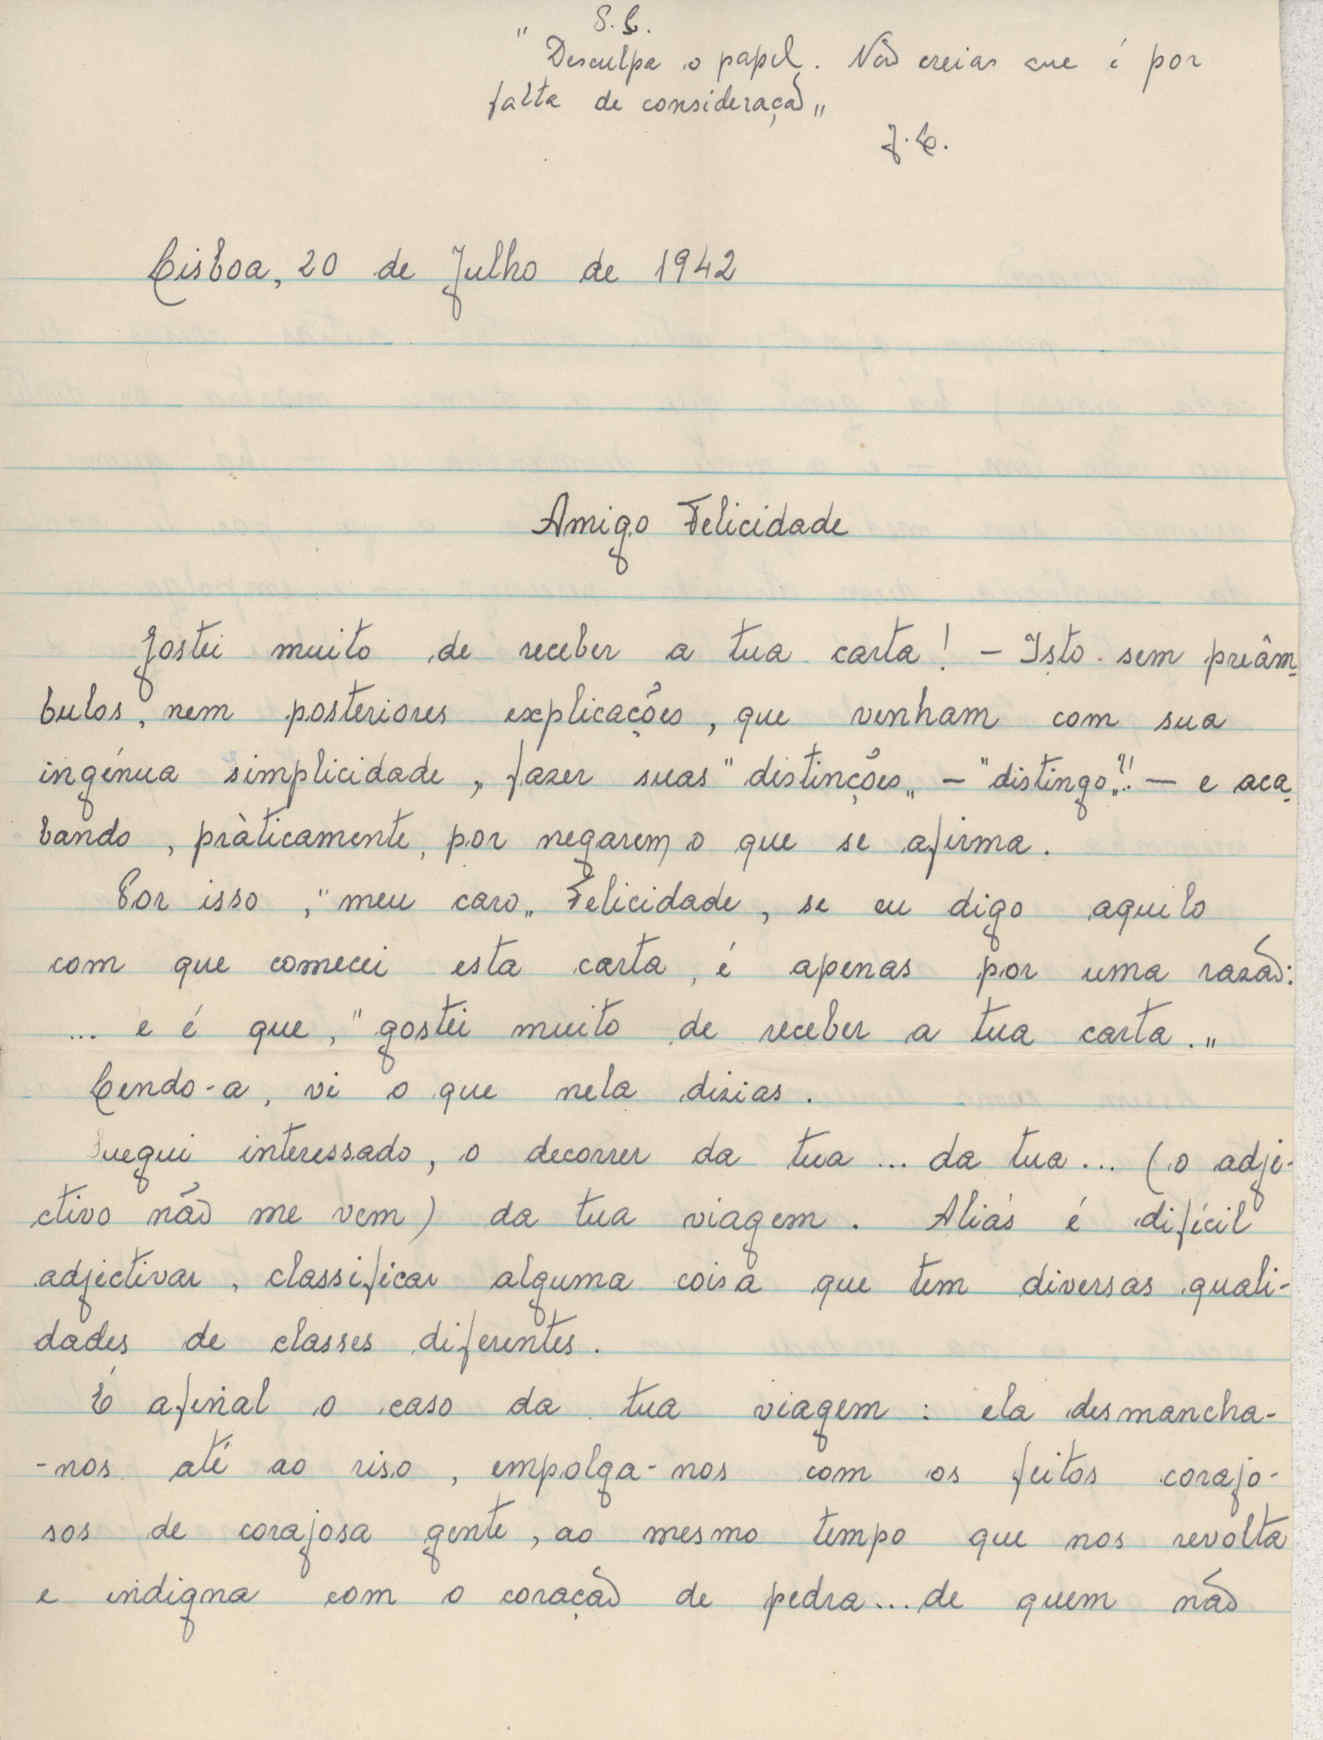 S. C.
"Desculpa o papel. Não creias que é por
falta de consideração"
J. C.
Lisboa, 20 de Julho de 1942
Amigo Felicidade
Gostei muito de receber a tua carta! – Isto sem preâm-
bulos, nem posteriores explicações, que venham com sua
ingénua simplicidade, fazer suas "distinções" – "distingo"!! – e aca-
bando, pràticamente, por negarem o que se afirma.
Por isso, "meu caro" Felicidade, se eu digo aquilo
com que comecei esta carta, é apenas por uma razão:
... e é que, "gostei muito de receber a tua carta."
Lendo-a, vi o que nela dizias.
Segui interessado, o decorrer da tua ... da tua ... (o adje-
ctivo não me vem) da tua viagem. Aliás é difícil
adjectivar, classificar alguma coisa que tem diversas quali-
dades de classes diferentes.
É afinal o caso da tua viagem: ela desmancha-
-nos até ao riso, empolga-nos com os feitos corajo-
sos de corajosa gente, ao mesmo tempo que nos revolta
e indigna com o coração de pedra... de quem não